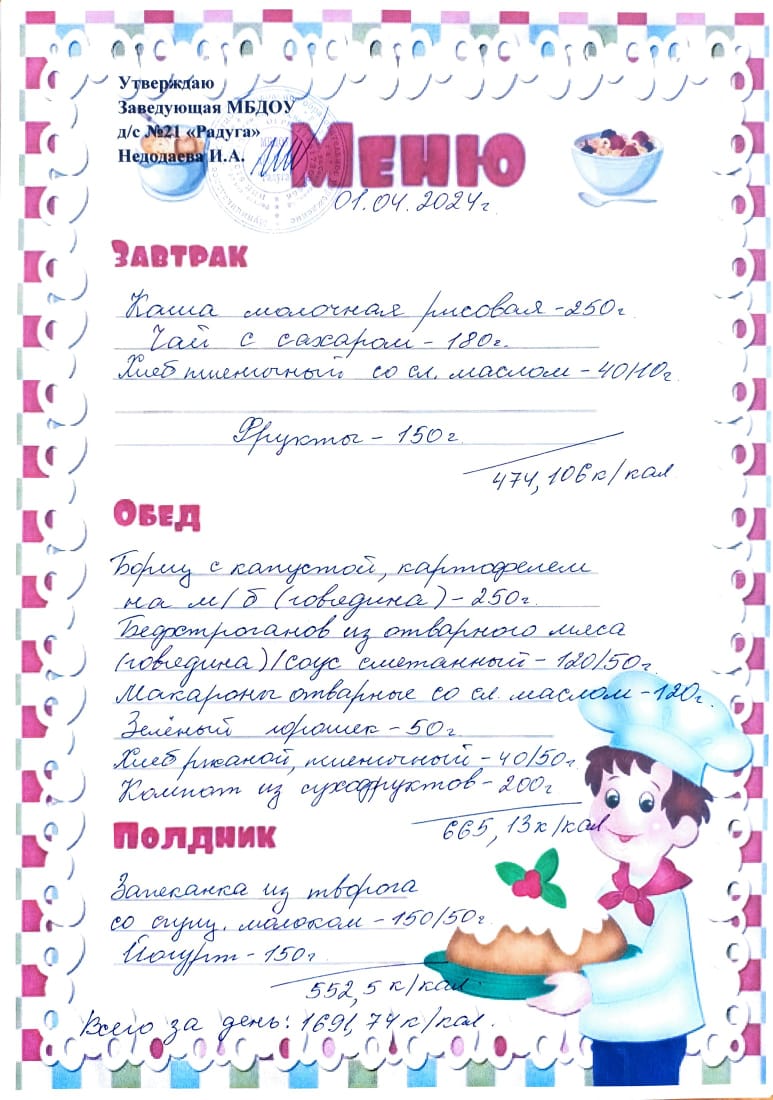 Утверждаю
Заведующая МБДОУ
д/с №21 «Радуга»
Недодаева И.А.
Меню
01.04.2024г.
Завтрак
Каша молочная рисовая - 250г.
Чай с сахаром - 180г.
Хлеб пшеничный со сл. маслом - 40/10г.
Фрукты - 150г.
474,106 к/кал
Обед
Борщ с капустой, картофелем
на м/б (говядина) - 250г.
Бефстроганов из отварного мяса
(говядина)/соус сметанный - 120/50г.
Макароны отварные со сл. маслом - 120г.
Зелёный горошек - 50г.
Хлеб ржаной, пшеничный - 40/50г.
Компот из сухофруктов - 200г
665,13 к/кал
Полдник
Запеканка из творога
со сгущ. молоком - 150/50г.
Йогурт - 150г.
552,5 к/кал.
Всего за день: 1691,74 к/кал.